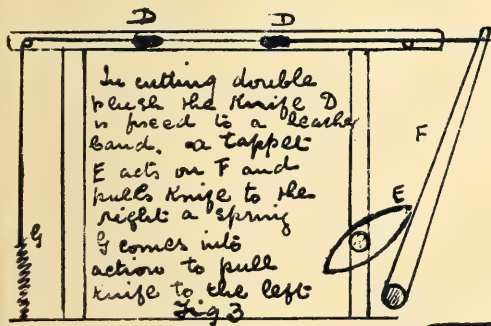 D D
In cutting double
plush the Knife D
is fixed to a leather
band. a tappet
E acts on F and
pulls Knife to the
right a spring
G comes into
action to pull
knife to the left
Fig 3
F
E
G